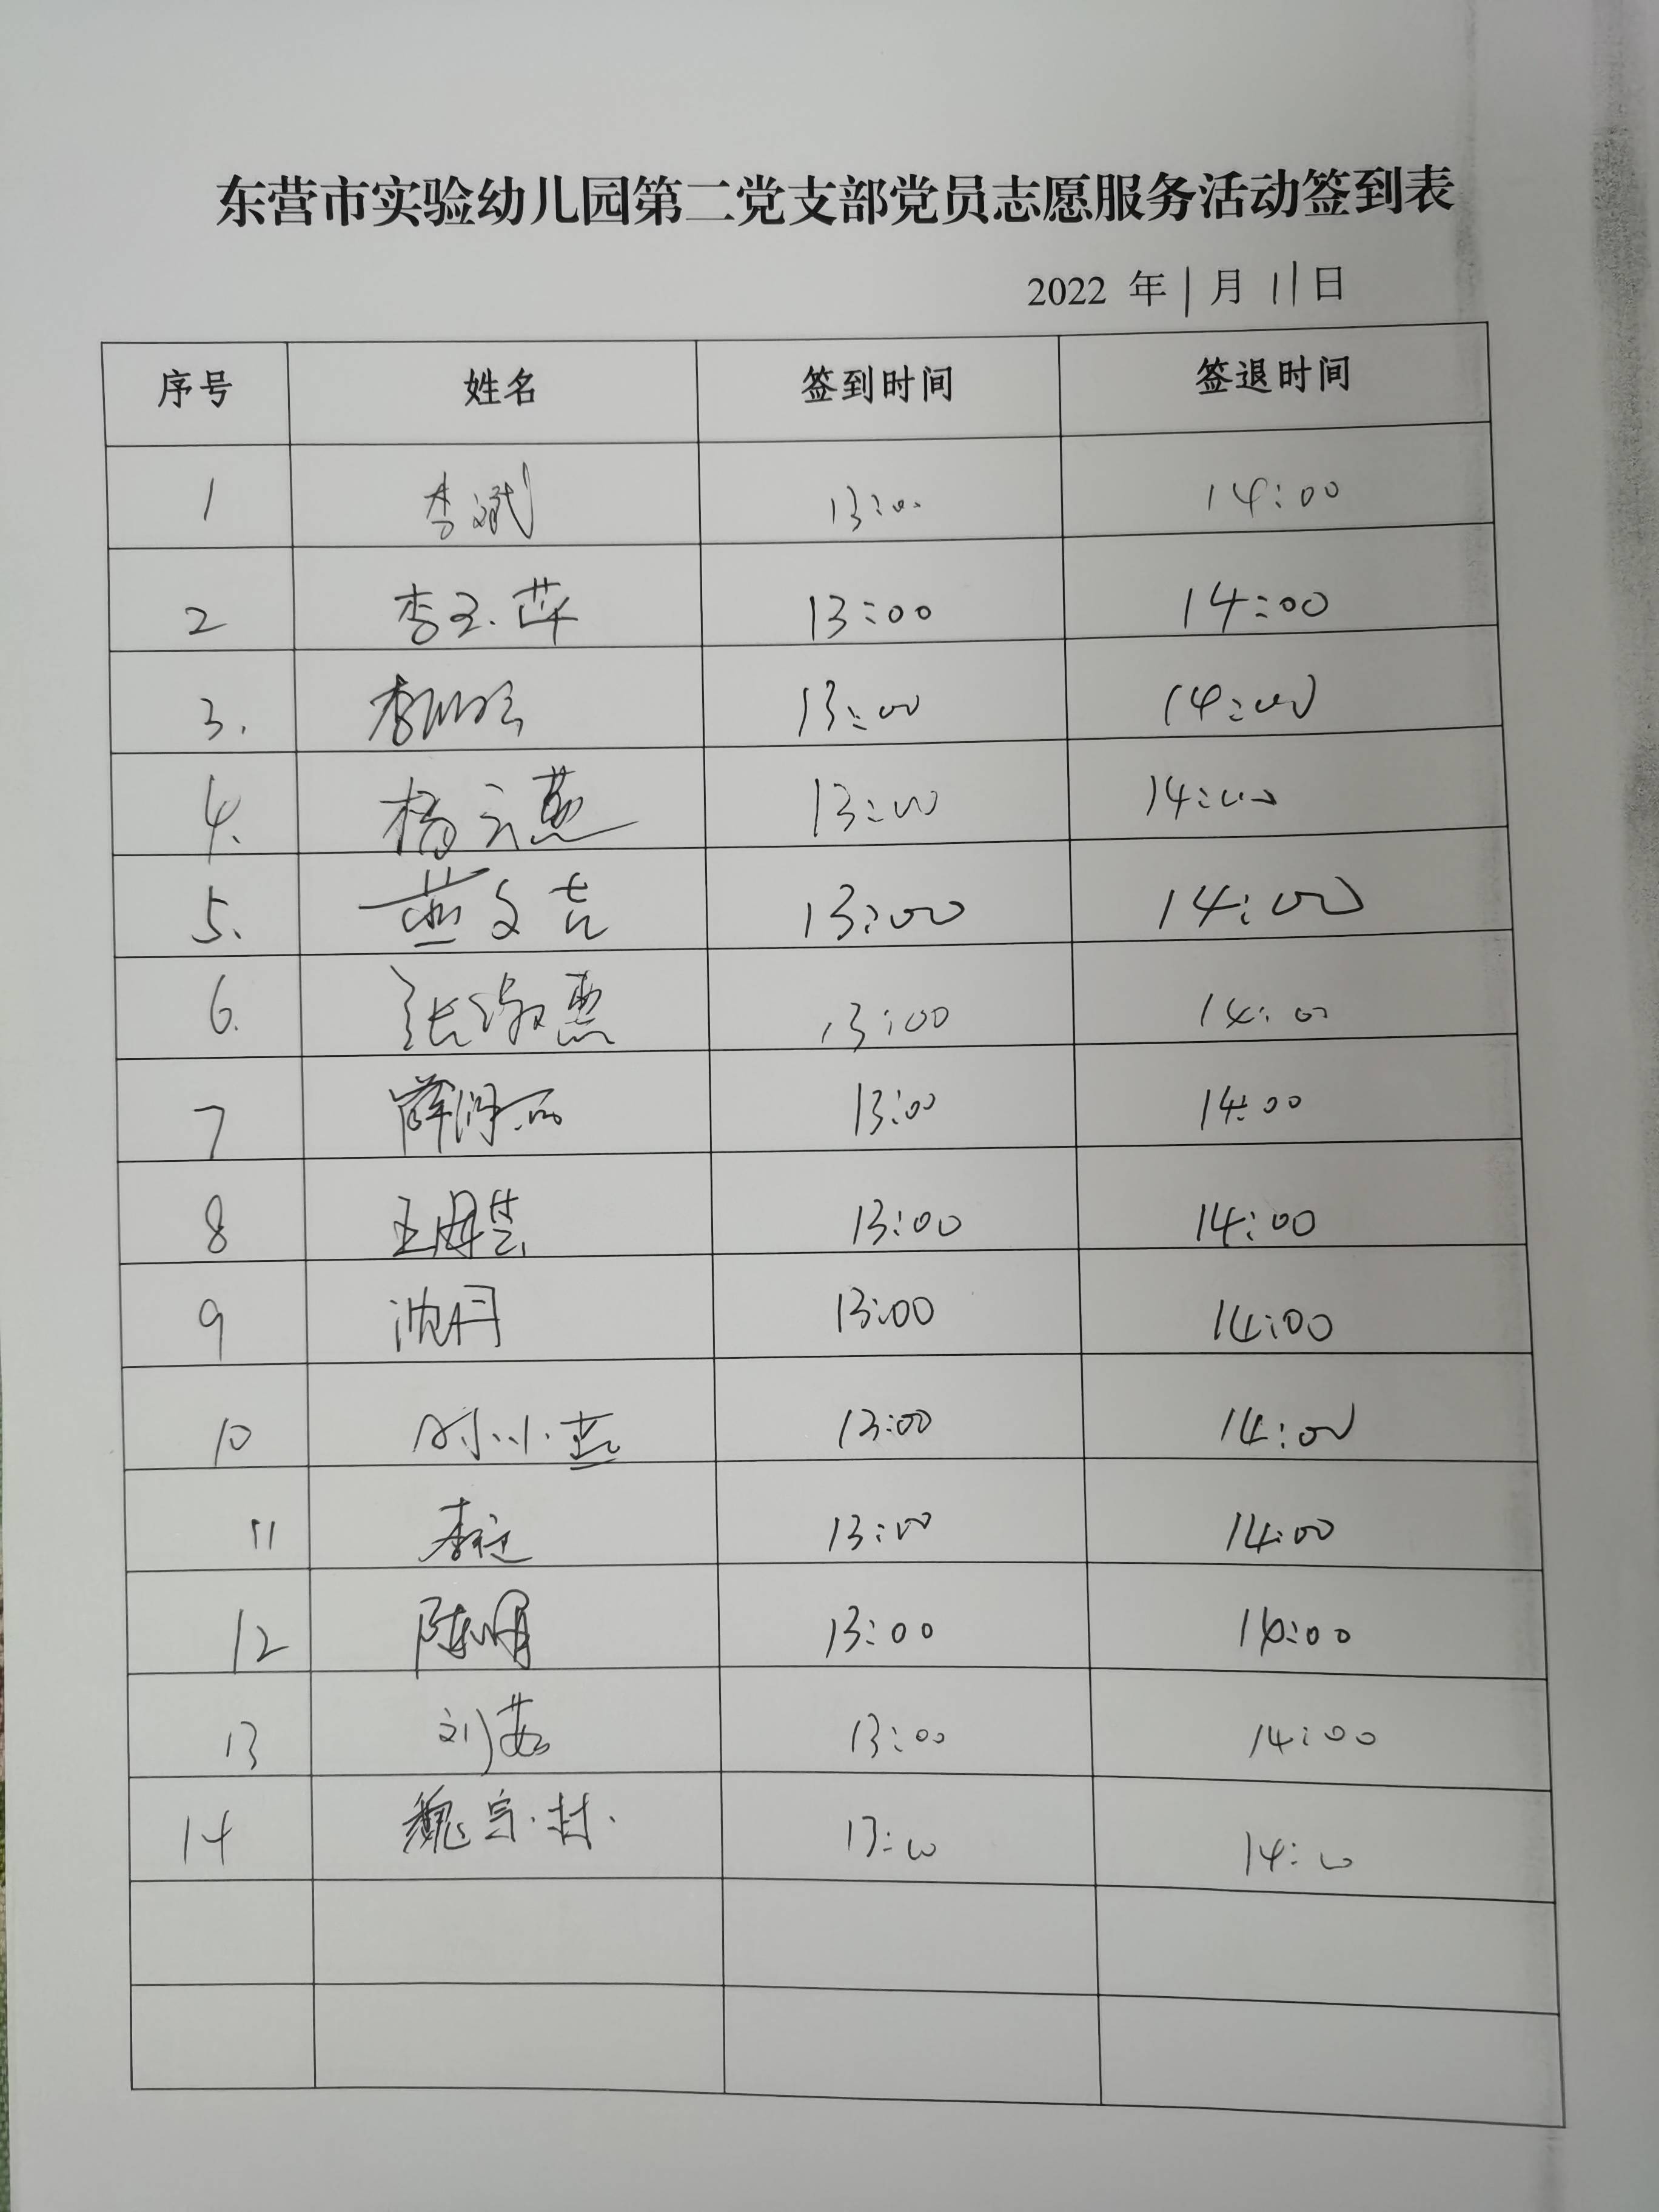 东营市实验幼儿园第二党支部党员志愿服务活动签到表
2022 年 1 月 11 日
序号 姓名 签到时间 签退时间
1 李斌 13:00 14:00
2 李玉萍 13:00 14:00
3. 李 13:00 14:00
4. 杨云燕 13:00 14:00
5. 燕文吉 13:00 14:00
6. 张淑惠 13:00 14:00
7 薛 13:00 14:00
8 王 13:00 14:00
9 沈丹 13:00 14:00
10 时小燕 13:00 14:00
11 李 13:00 14:00
12 陈明 13:00 14:00
13 刘茹 13:00 14:00
14 魏宗村 13:00 14:00